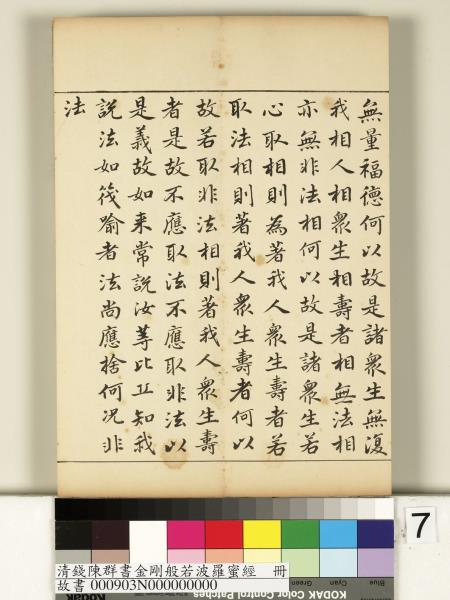 無量福德何以故是諸衆生無復
我相人相衆生相壽者相無法相
亦無非法相何以故是諸衆生若
心取相則為著我人衆生壽者若
取法相則著我人衆生壽者何以
故若取非法相則著我人衆生壽
者是故不應取法不應取非法以
是義故如来常說汝等比丘知我
說法如筏喻者法尚應捨何况非
法
7
清錢陳群書金剛般若波羅蜜經 冊
故書 000903N000000000
Cyan
Green
Blue
KODAK Color Control Patches